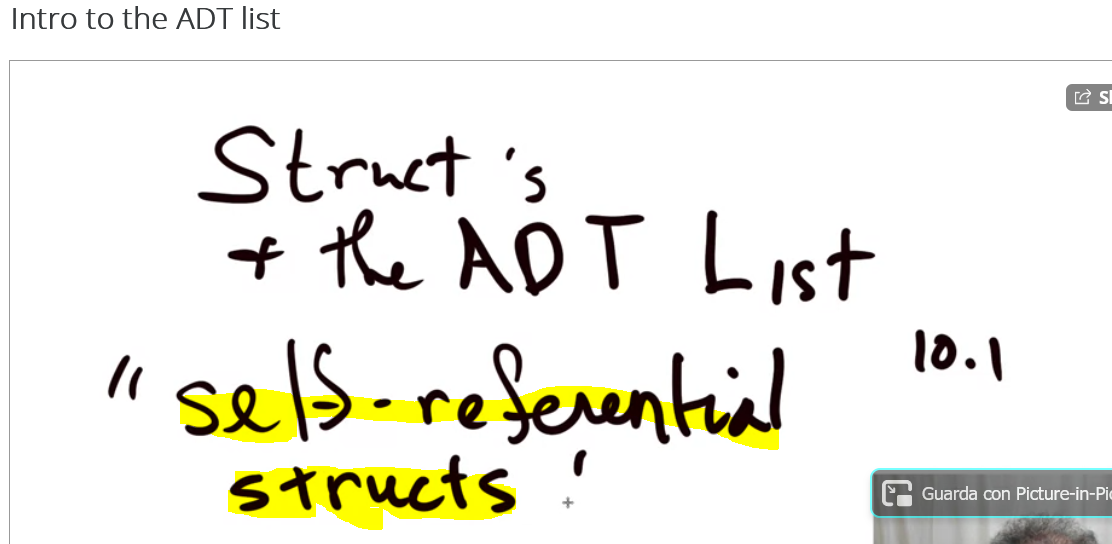 Intro to the ADT list
Struct's
+ the ADT List
10.1
" self-referential
structs '
Guarda con Picture-in-Pi